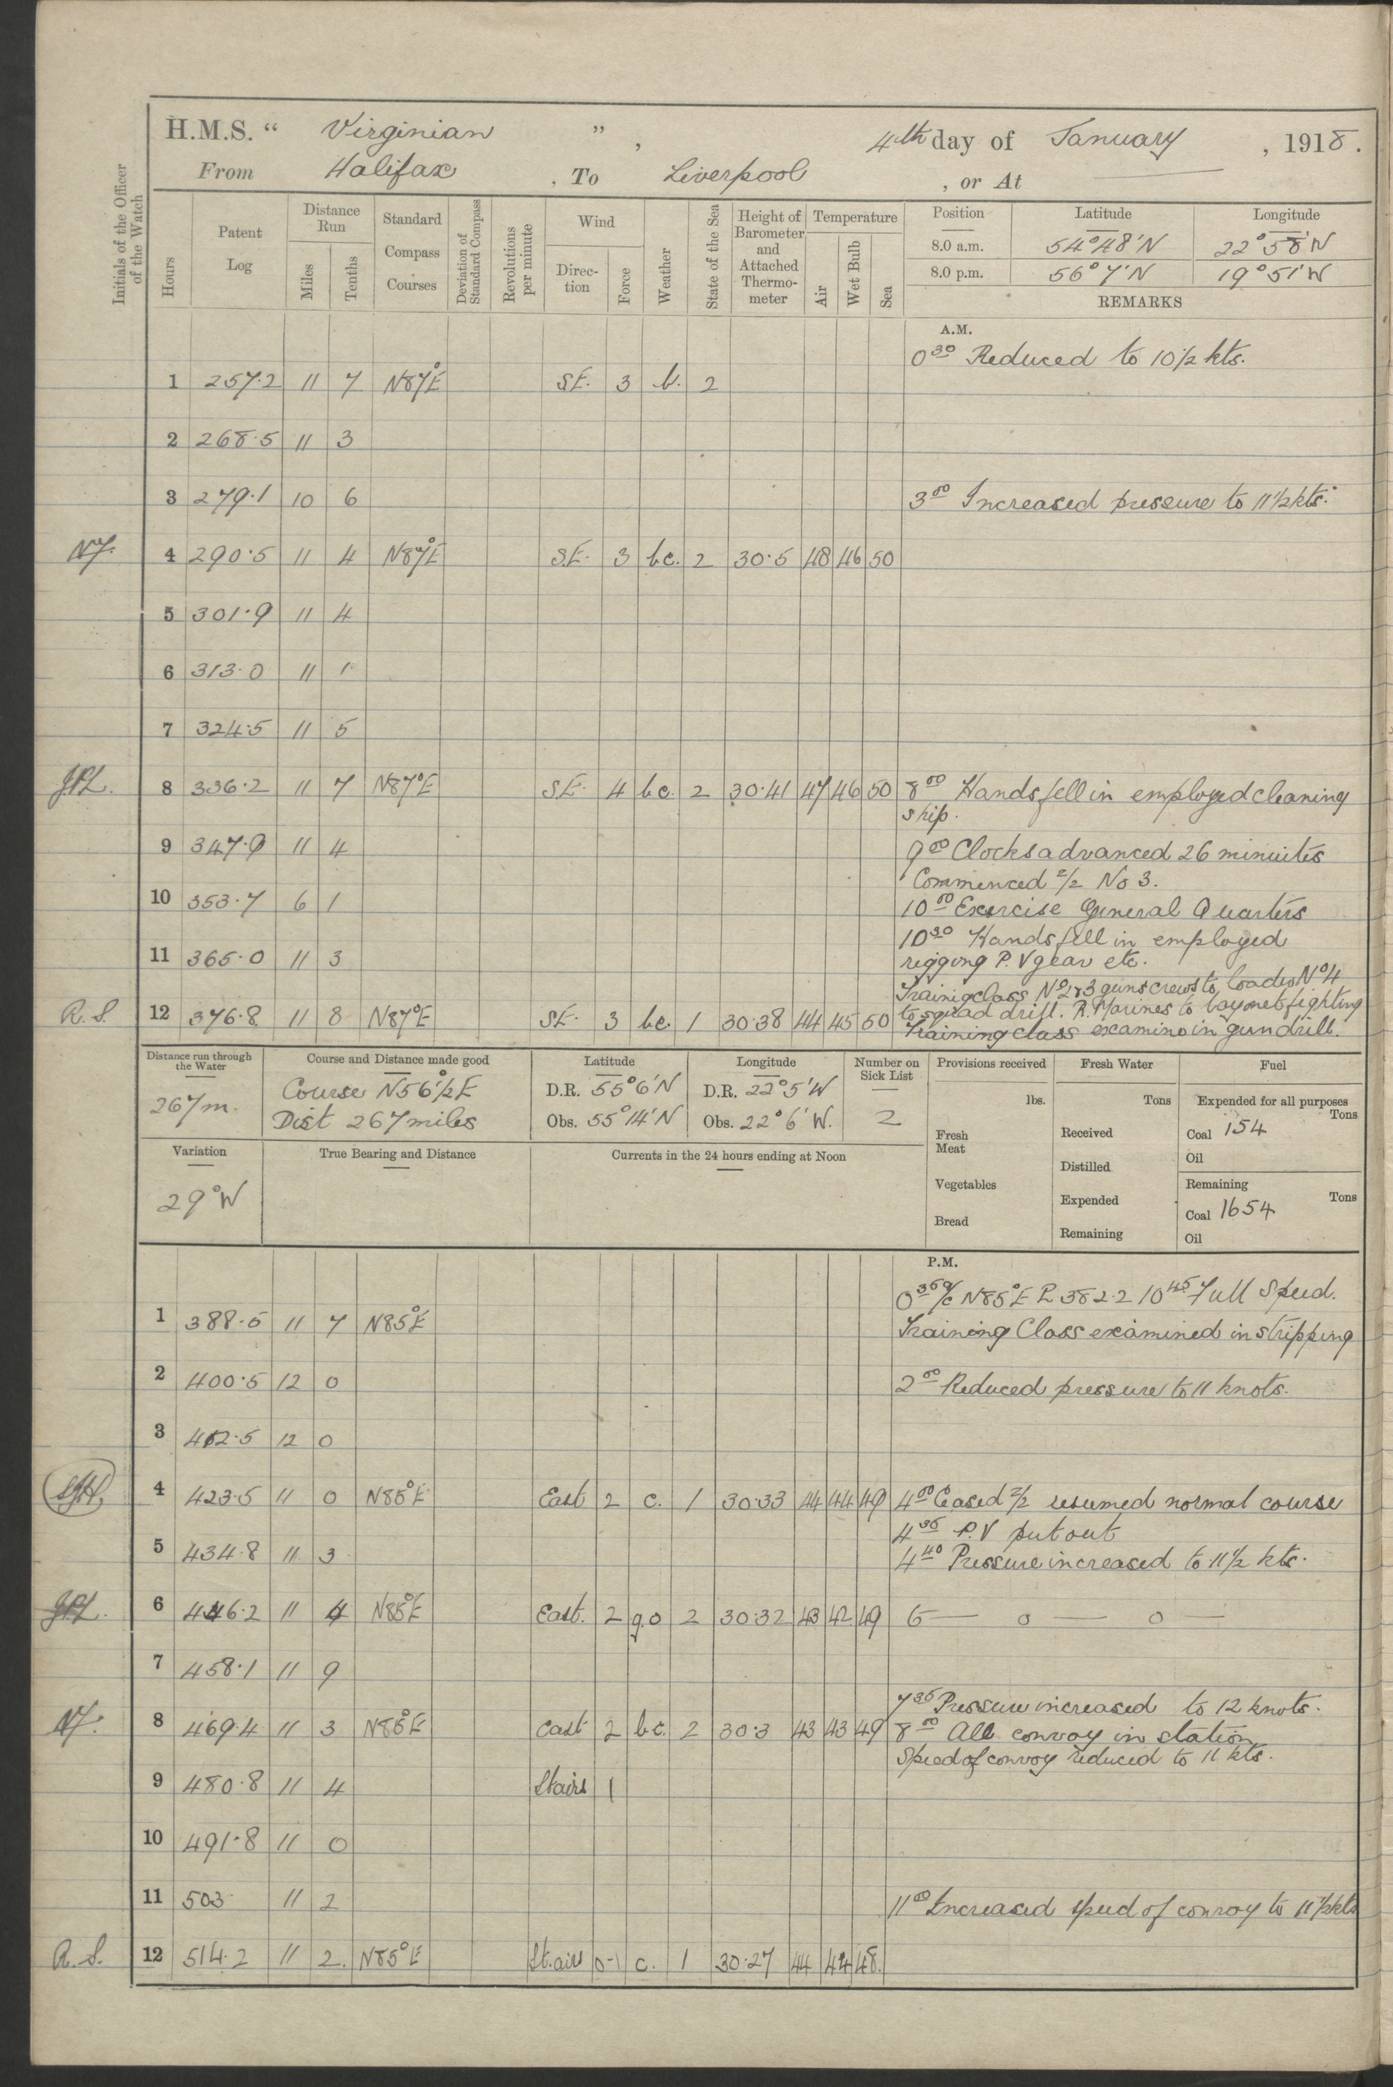 H.M.S. “ Virginian ” , 4th day of January , 1918.
From Halifax , To Liverpool , or At
Initials of the Officer of the Watch
Hours
Patent Log
Distance Run
Miles
Tenths
Standard Compass Courses
Deviation of Standard Compass
Revolutions per minute
Wind
Direction
Force
Weather
State of the Sea
Height of Barometer and Attached Thermometer
Temperature
Air
Wet Bulb
Sea
Position Latitude Longitude
8.0 a.m. 54°48'N 22°58'W
8.0 p.m. 56°7'N 19°51'W
REMARKS
A.M.
0 30 Reduced to 10½ kts.
1 257.2 11 7 N87°E SE. 3 b. 2
2 268.5 11 3
3 279.1 10 6 3 00 Increased pressure to 11½ kts.
NF. 4 290.5 11 4 N87°E S.E. 3 bc. 2 30.5 48 46 50
5 301.9 11 4
6 313.0 11 1
7 324.5 11 5
JPL. 8 336.2 11 7 N87°E SE. 4 bc. 2 30.41 47 46 50 8 00 Hands fell in employed cleaning
ship.
9 347.9 11 4 9 00 Clocks advanced 26 minuites
Commenced Z/Z No 3.
10 353.7 6 1 10 00 Exercise General Quarters
10 30 Hands fell in employed
11 365.0 11 3 rigging P.V gear etc.
Training class No 2 & 3 guns crews to loader No 4
R.S. 12 376.8 11 8 N87°E SE. 3 bc. 1 30.38 44 45 50 to squad drill. R. Marines to bayonet fighting
Training class examino in gun drill.
Distance run through the Water
267 m.
Course and Distance made good
Course N56½°E
Dist 267 miles
Latitude
D.R. 55°6'N
Obs. 55°14'N
Longitude
D.R. 22°5'W
Obs. 22°6'W.
Number on Sick List
2
Provisions received
lbs.
Fresh Meat
Vegetables
Bread
Fresh Water
Tons
Received
Distilled
Expended
Remaining
Fuel
Expended for all purposes
Tons
Coal 154
Oil
Remaining
Tons
Coal 1654
Oil
Variation
29°W
True Bearing and Distance
Currents in the 24 hours ending at Noon
P.M.
0 35 a/c N85°E PL 382.2 10 45 Full Speed.
1 388.5 11 7 N85°E Training Class examined in stripping
2 400.5 12 0 2 00 Reduced pressure to 11 knots.
3 412.5 12 0
4 423.5 11 0 N85°E East 2 c. 1 30.33 44 44 49 4 00 Ceased Z/Z resumed normal course
4 35 P.V put out
5 434.8 11 3 4 40 Pressure increased to 11½ kts.
JPL. 6 446.2 11 4 N85°E East. 2 g.o 2 30.32 43 42 49 6 — o — o —
7 458.1 11 9
7 35 Pressure increased to 12 knots.
NF. 8 469.4 11 3 N85°E East 2 bc. 2 30.3 43 43 49 8 00 All convoy in station
Speed of convoy reduced to 11 kts.
9 480.8 11 4 Lt airs 1
10 491.8 11 0
11 503 11 2 11 00 Increased speed of convoy to 11½ kts
R.S. 12 514.2 11 2. N85°E Lt. airs 0-1 c. 1 30.27 44 44 48.